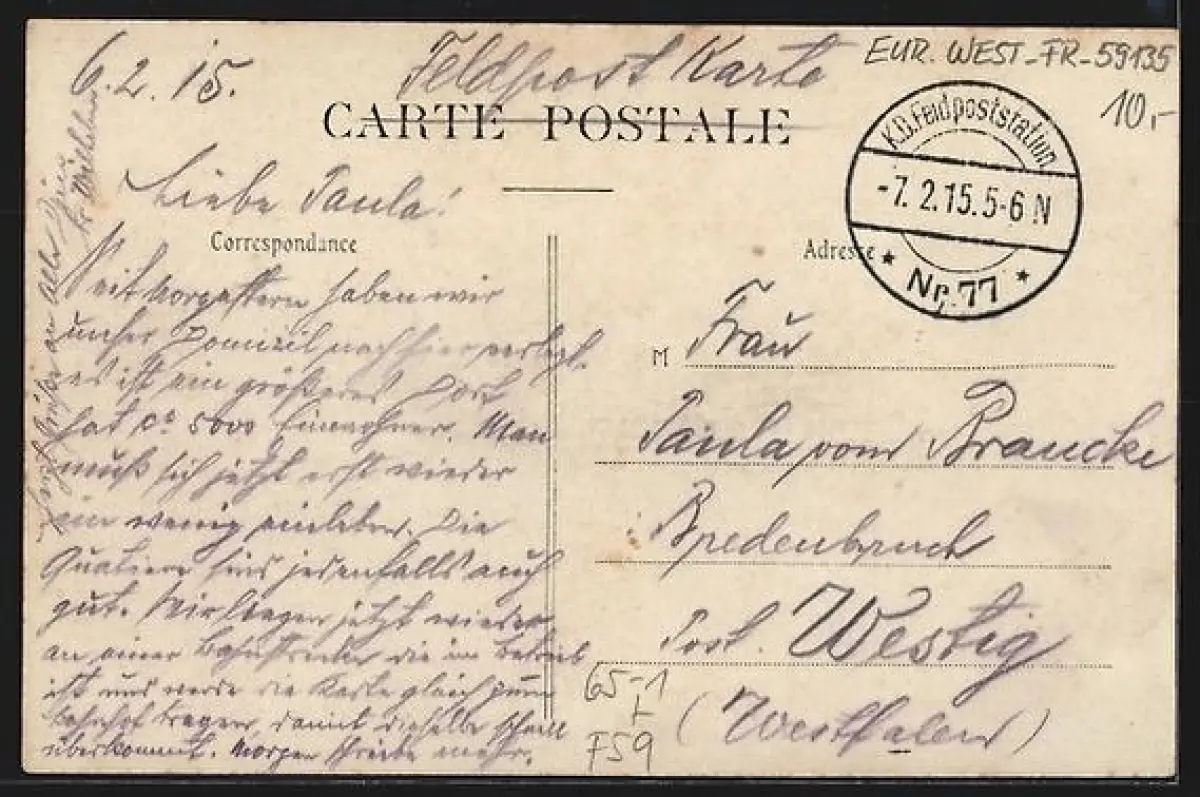 6.2.15.
Feldpost Karte
EUR. WEST-FR-59135
10,-
CARTE POSTALE
K.D.Feldpoststation
-7.2.15.5-6 N
* Nr. 77 *
Liebe Paula!
Correspondance
Adresse
Seit vorgestern haben wir
unser Domizil nach hier verlegt,
es ist ein größeres Dorf
hat ca 5000 Einwohner. Man
muß sich jetzt erst wieder
ein wenig einleben. Die
Quatiere sind jedenfalls auch
gut. Wir liegen jetzt wieder
an einer Bahnstrecke die im Betrieb
ist und werde die Karte gleich zum
Bahnhof tragen, damit dieselbe schnell
überkommt. Morgen schreibe mehr.
M Frau
Paula vom Braucke
Bredenbruch
Post. Westig
(Westfalen)
65-1
F59